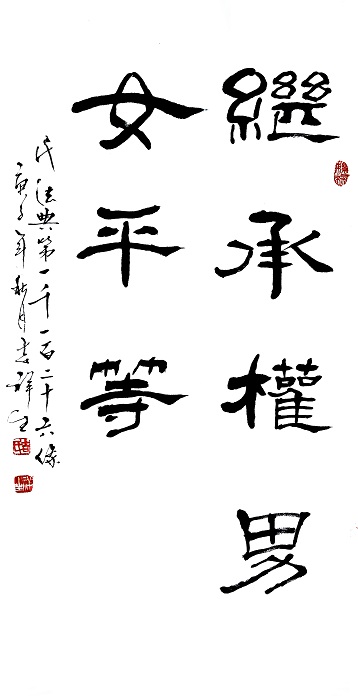 繼承權男
女平等
民法典第一千一百二十六條
庚子年秋月吉祥書